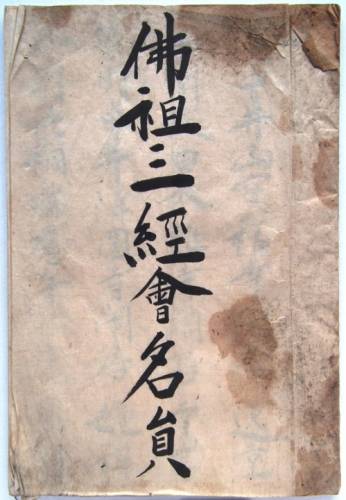 佛祖三經會名員